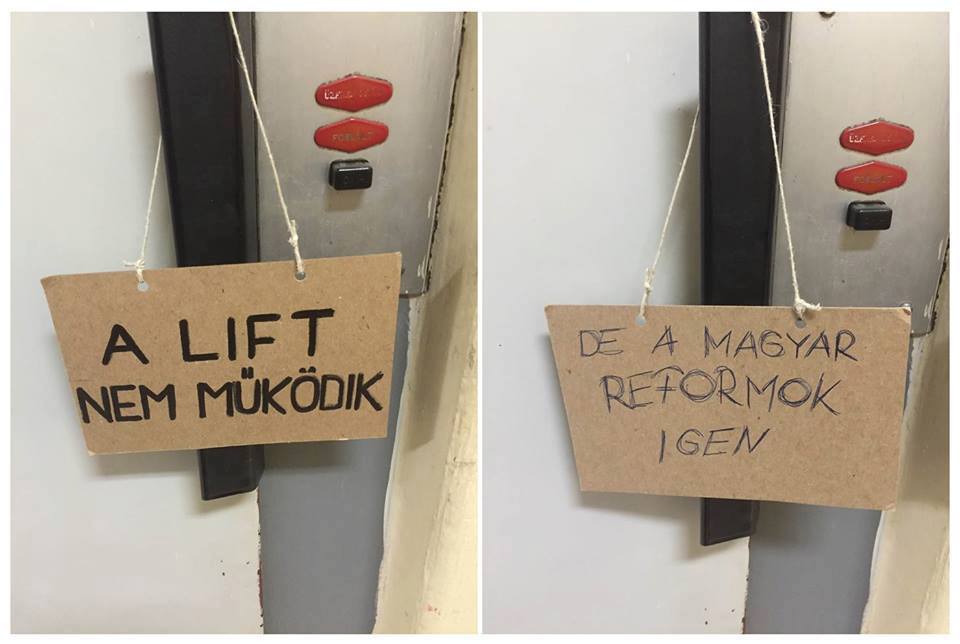 FOGLALT
A LIFT
NEM MŰKÖDIK
FOGLALT
DE A MAGYAR
REFORMOK
IGEN